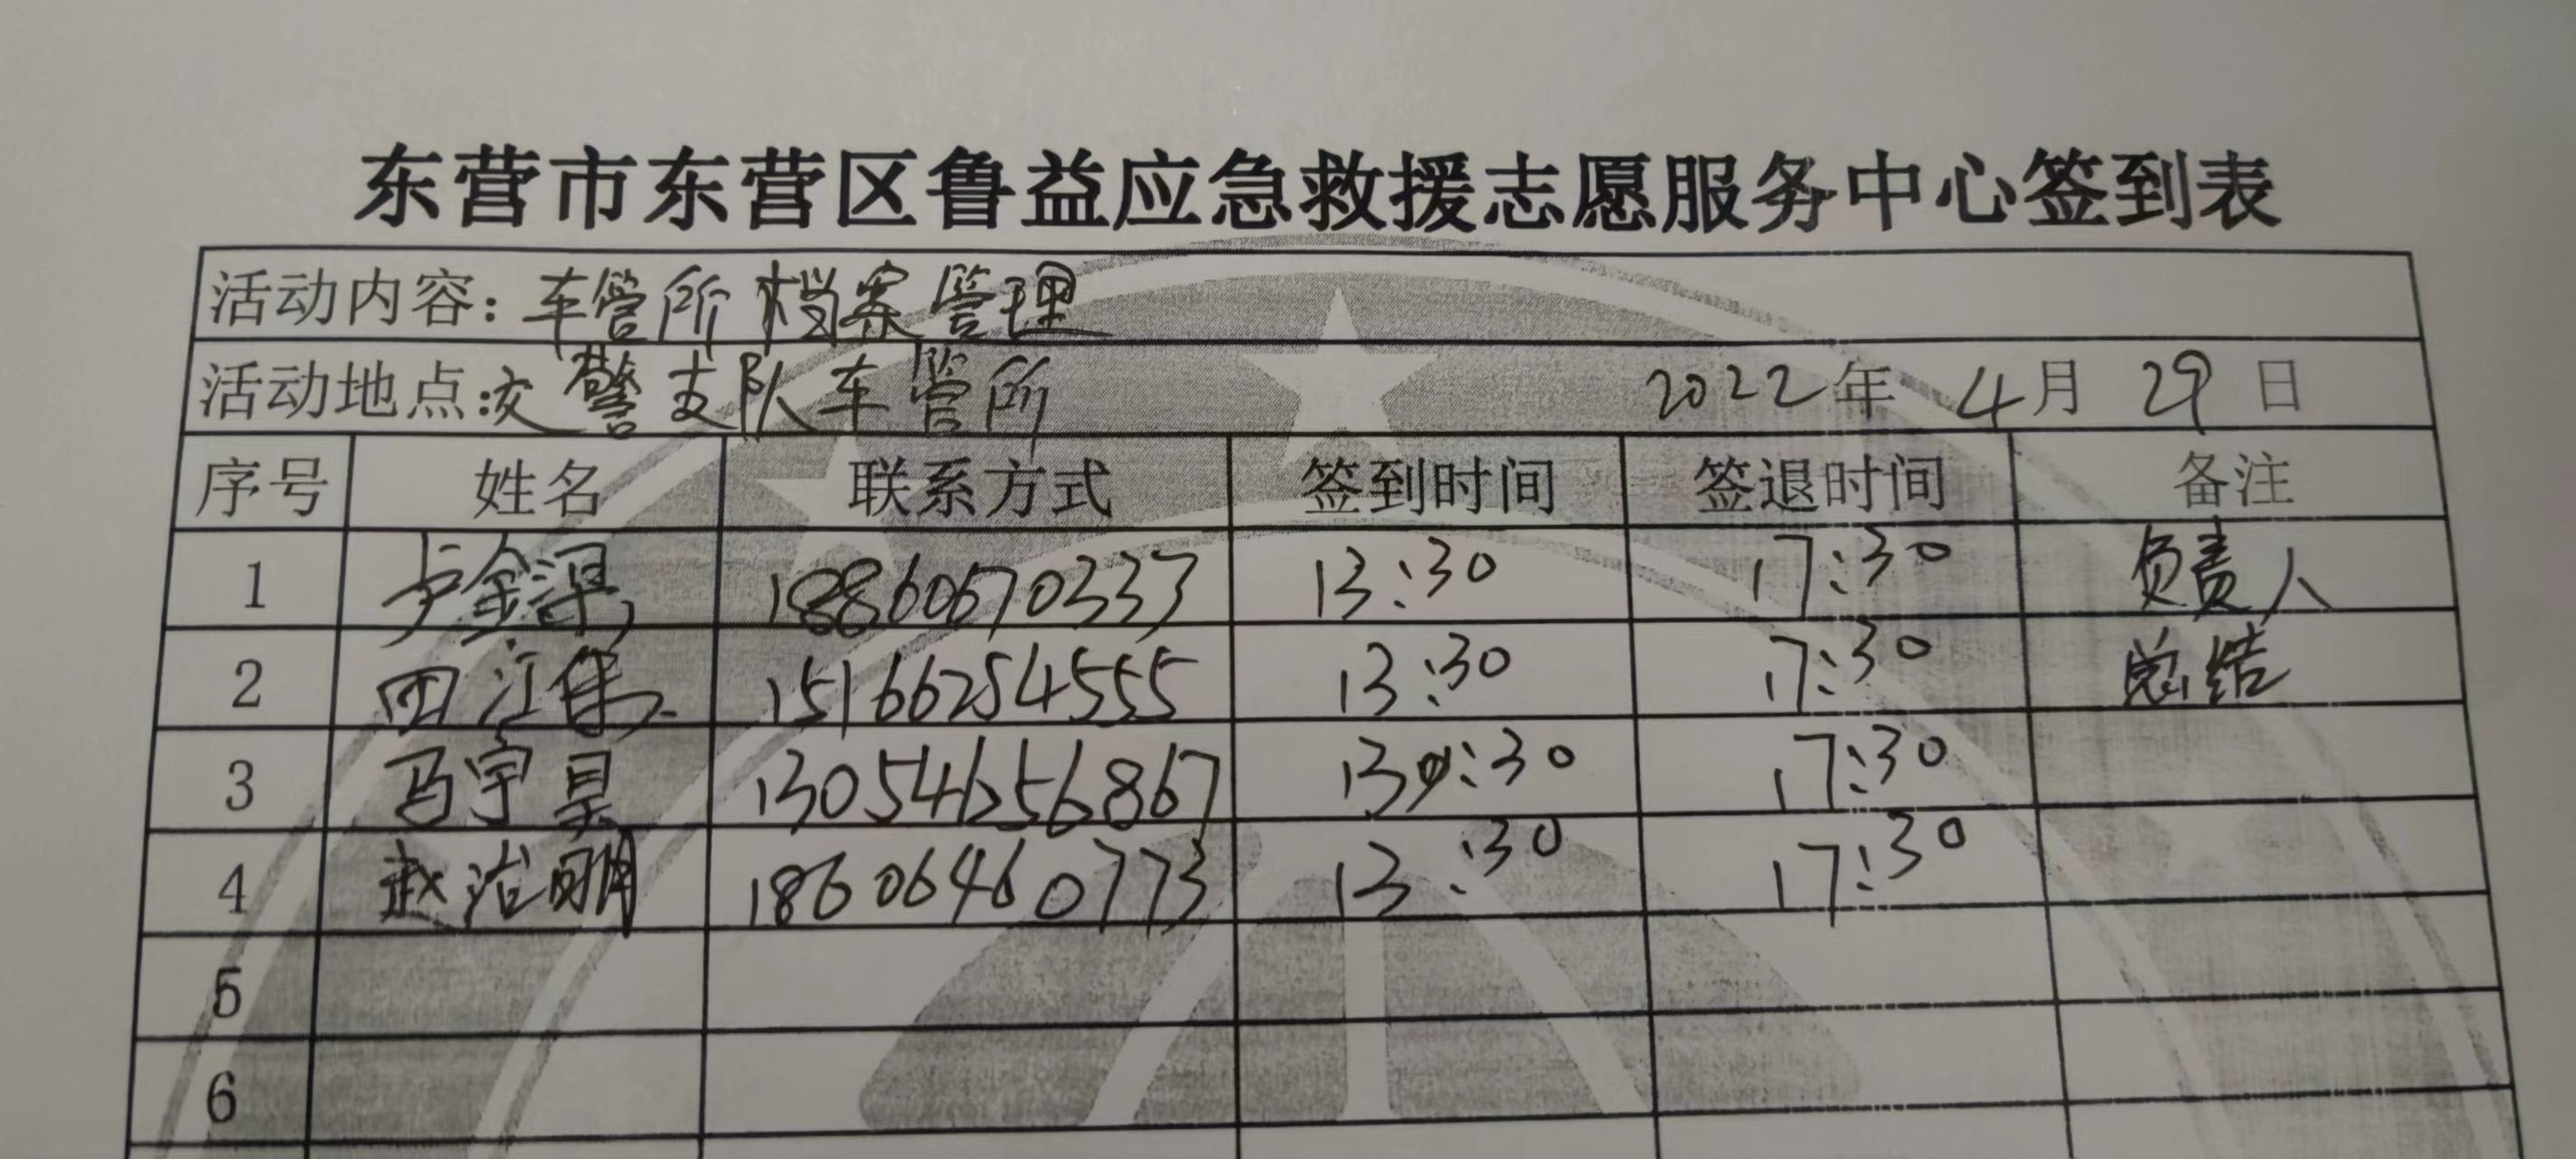 东营市东营区鲁益应急救援志愿服务中心签到表
活动内容：车管所档案管理
活动地点：交警支队车管所 2022年 4月 29日
序号 姓名 联系方式 签到时间 签退时间 备注
1 卢金 18860570333 13:30 17:30 负责人
2 江 15166254555 13:30 17:30 总结
3 马宇昊 13054656867 13:30 17:30
4 赵治明 18606460773 13:30 17:30
5
6